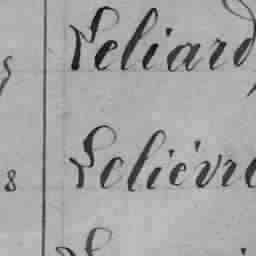 Leliard,
8 Lelièvre